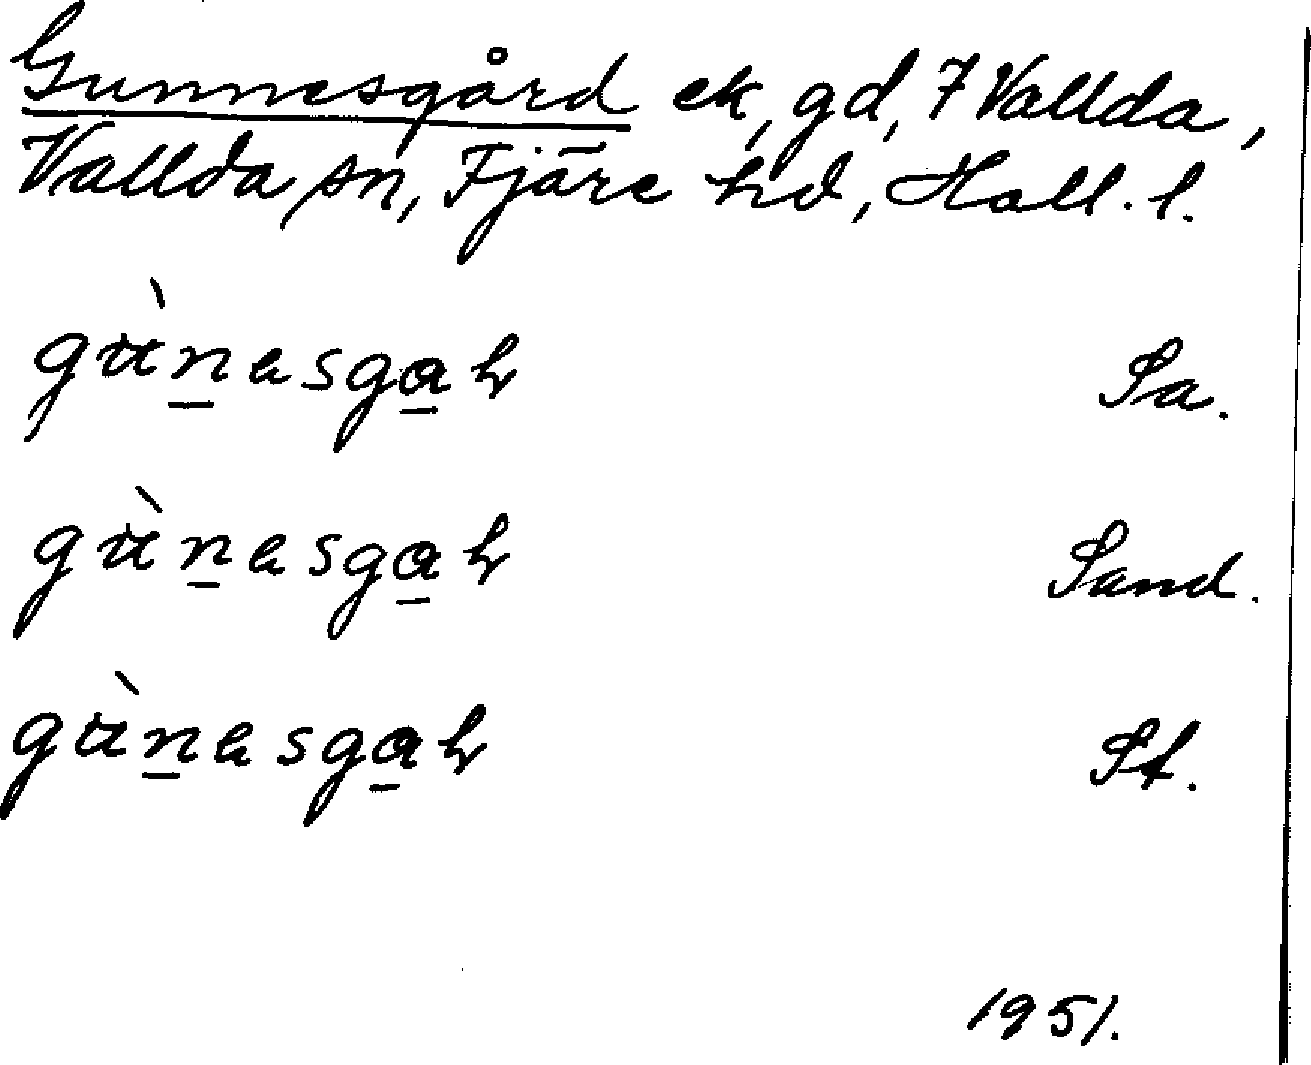 Gunnesgård ek, gd, 7 Vallda,
Vallda sn, Fjäre hd, Hall. l.
gùnesgar Sa.
gùnesgar Sand.
gùnesgar St.
1951.